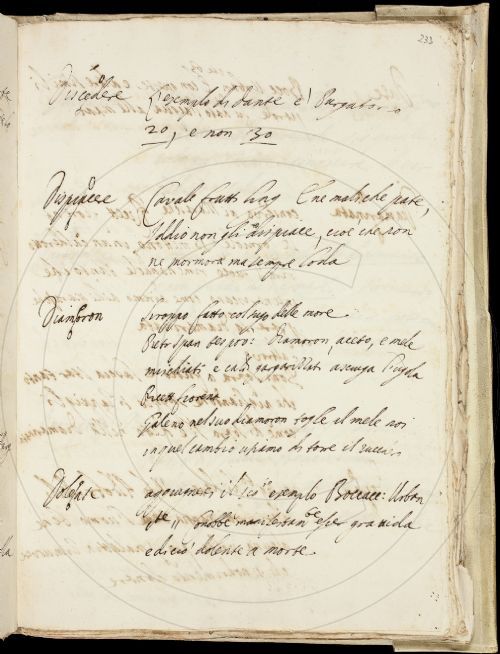 233
Discedere L'esempio di dante è Purgatorio
20, e non 30
Dispiacere Cavalc frutti ling E ne mali che pate,
Iddio non gli dispiace, cioè che non
ne mormora ma sempre loda
Diamoron siroppo fatto col sugo delle more
Diamoron, aceto, e mele
mischiati e caldi gargarizzati asciuga l'ugola
Ricett fiorent
Galeno nel suo diamoron togle il mele noi
in quel cambio usiamo di torre il zucchero
Dolente aggiugnesi il esempio Boccacc: Urban
conobbe manifestam.te esser gravida
e dicio dolente a morte